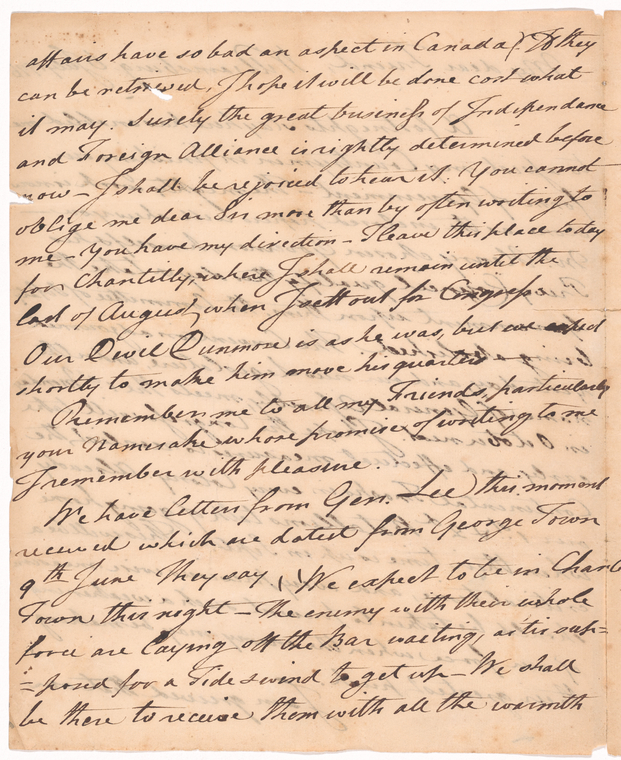 affairs have so bad an aspect in Canada. If they
can be retrieved, I hope it will be done cost what
it may. Surely the great business of Independance
and Foreign Alliance is rightly determined before
now – I shall be rejoiced to hear it. You cannot
oblige me dear Sir more than by often writing to
me – You have my direction – I leave this place today
for Chantilly, where I shall remain until the
last of August, when I sett out for Congress
Our Devil Dunmore is as he was, but we
shortly to make him move his quarters –
Remember me to all my Friends, particularly
your Namesake whose promise of writing to me
I remember with pleasure.
We have letters from Gen. Lee this moment
received which are dated from George Town
9th June They say, "We expect to be in Charls
Town this night – The enemy with their whole
force are laying off the Bar waiting, as tis sup=
=posed for a Tide & wind to get up – We shall
be there to receive them with all the warmth